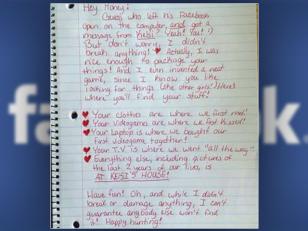 Hey Honey!
Guess who left his Facebook
open on the computer and got a
message from Kesi? Yeah! You! :)
But don't worry. I didn't
break anything! Actually, I was
nice enough to package your
things! And I even invented a neat
game, since I know you like
looking for things like other girls! Here's
where you'll find your stuff!
Your clothes are where we first met!
Your videogames are where we first kissed!
Your laptop is where we bought our
first videogame together!
Your T.V is where we went "all the way"
Everything else, including pictures of
the last 2 years of our lives, is
AT KESI'S HOUSE!
Have fun! Oh, and while I didn't
break or damage anything, I can't
guarantee anybody else won't find
it! Happy hunting!
fa k.